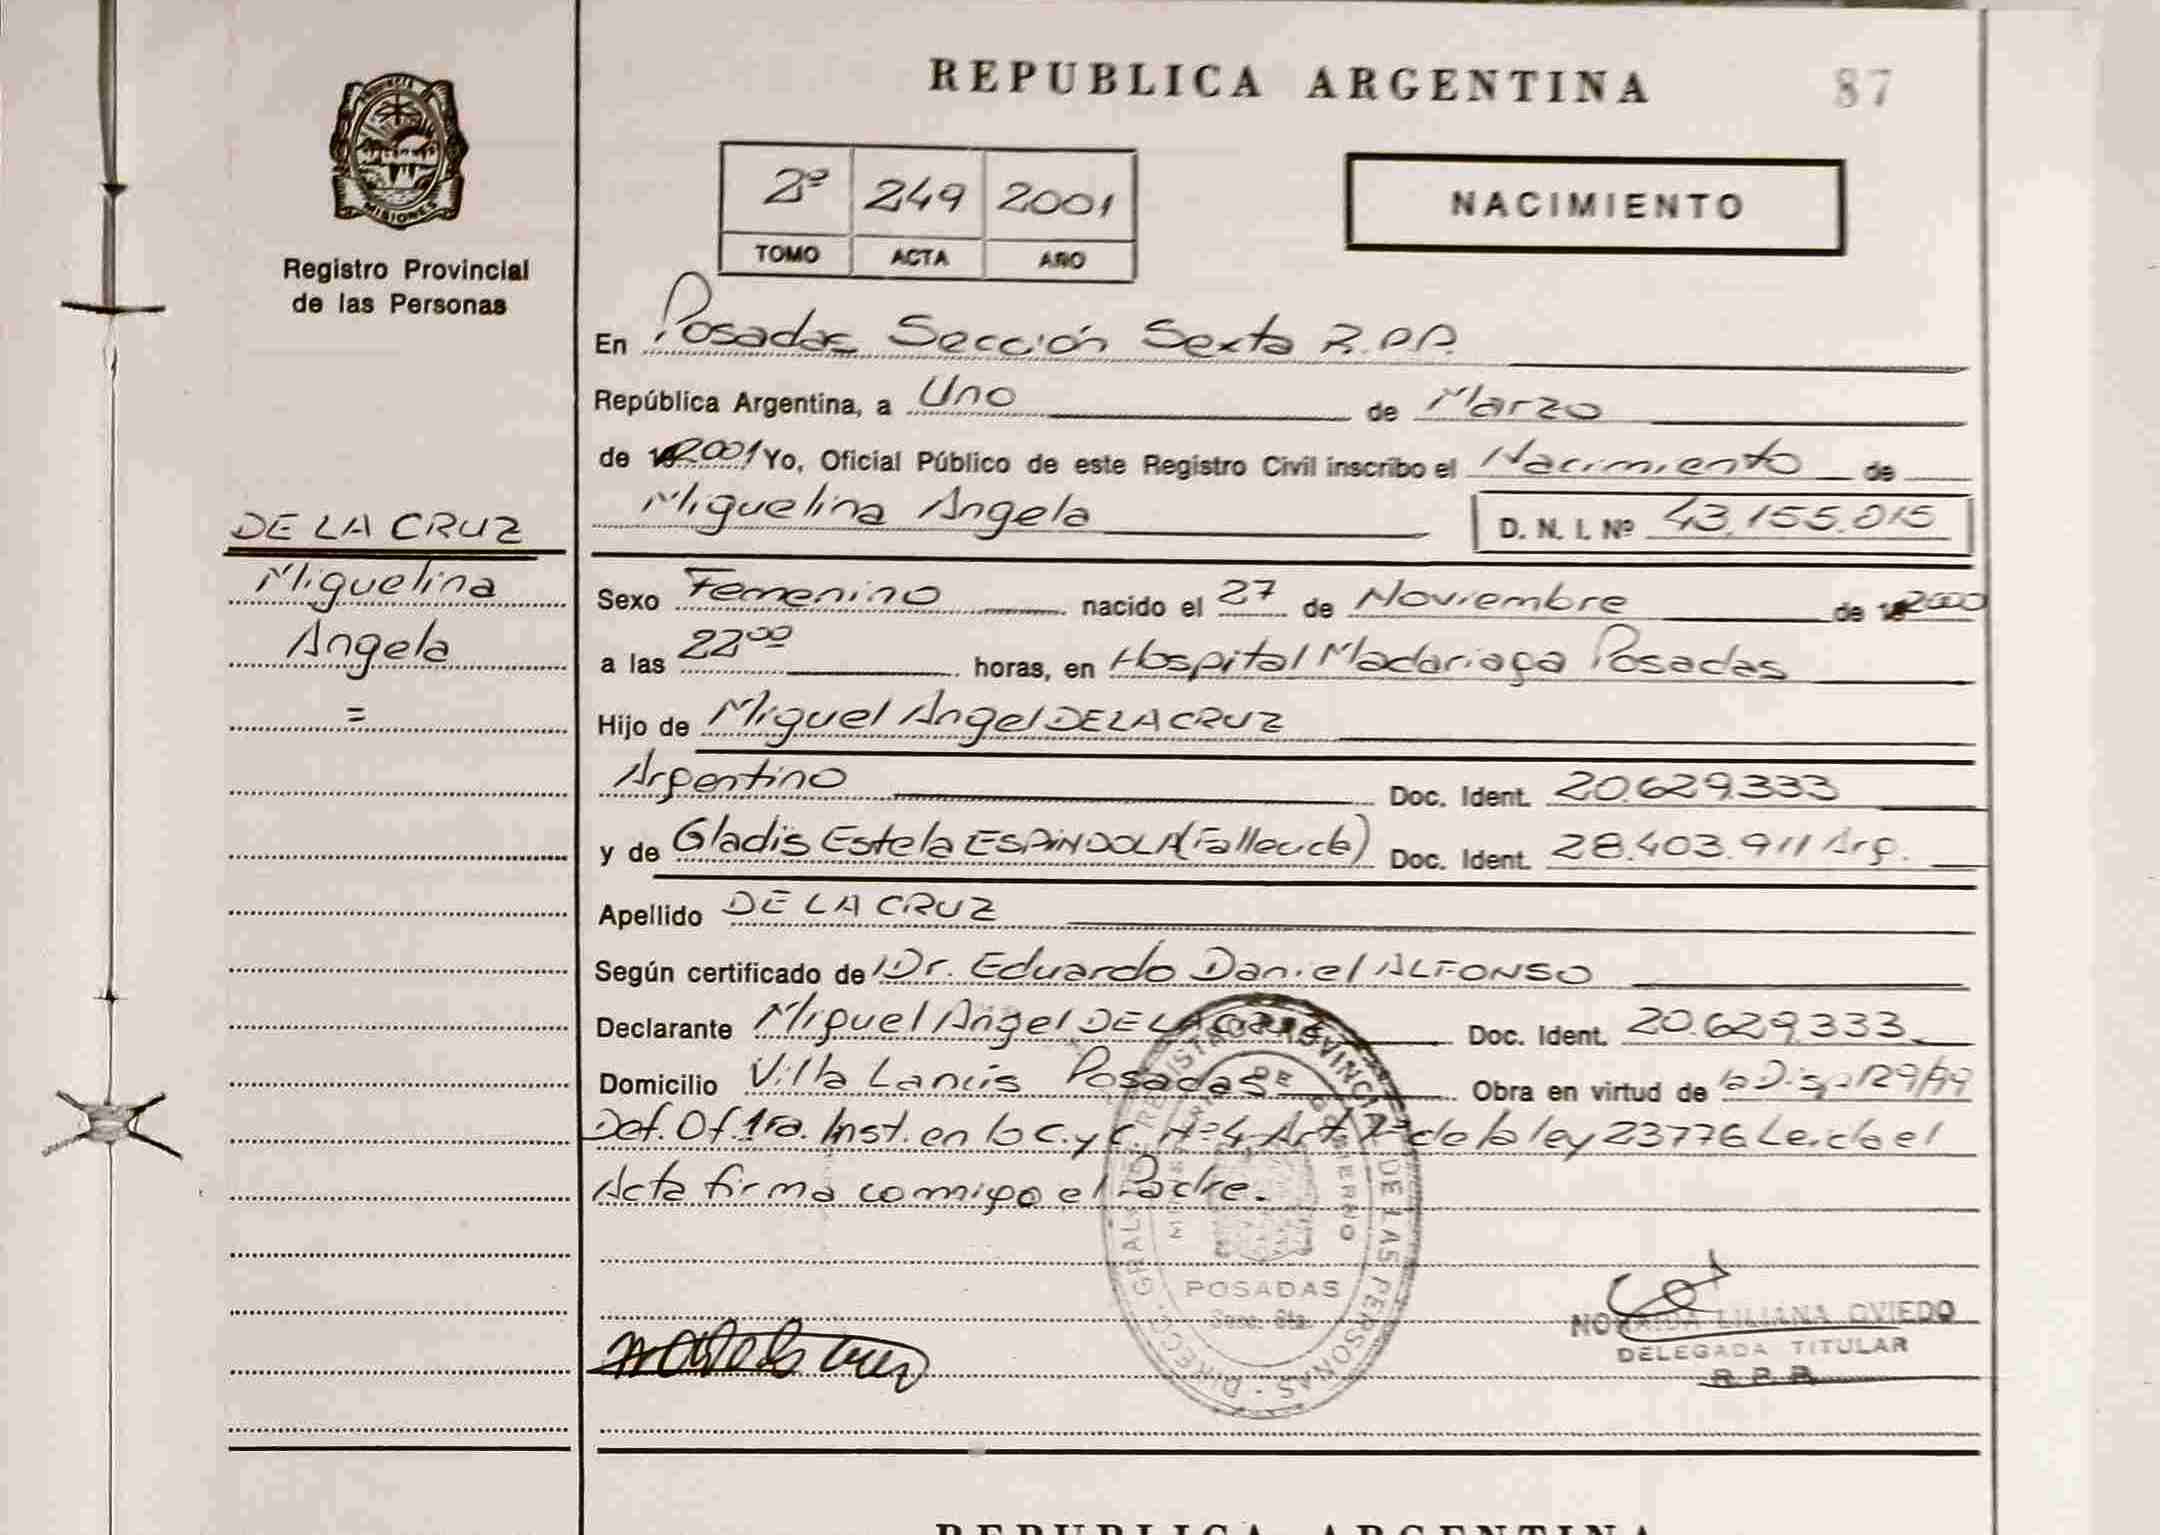 REPUBLICA ARGENTINA
87
PROVINCIA DE
MISIONES
Registro Provincial
de las Personas
2º 249 2001
TOMO ACTA AÑO
NACIMIENTO
En Posadas Sección Sexta R.P.P.
República Argentina, a Uno de Marzo
de 2001 Yo, Oficial Público de este Registro Civil inscribo el Nacimiento de
Miguelina Angela D. N. I. Nº 43.155.015
DE LA CRUZ
Miguelina
Angela
=
Sexo Femenino nacido el 27 de Noviembre de 2000
a las 22⁰⁰ horas, en Hospital Madariaga Posadas
Hijo de Miguel Angel DE LA CRUZ
Argentino Doc. Ident. 20.629.333
y de Gladis Estela ESPINDOLA (Fallecida) Doc. Ident. 28.403.911 Arg.
Apellido DE LA CRUZ
Según certificado de Dr. Eduardo Daniel ALFONSO
Declarante Miguel Angel DE LA CRUZ Doc. Ident. 20.629.333
Domicilio Villa Lanús Posadas Obra en virtud de la Disp. 129/99
Def. Of. 1ra. Inst. en lo C. y C. Nº 4 Art. 2º de la ley 23776 Leida el
Acta firma conmigo el Padre.
DIRECC. GRAL. DE REGISTRO PROVINCIAL DE LAS PERSONAS
DE GOBIERNO
POSADAS
Secc. 6ta.
LILIANA OVIEDO
DELEGADA TITULAR
R. P. P.
REPUBLICA ARGENTINA